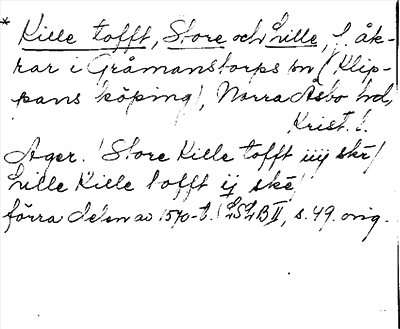 * Kille tofft, Store och Lille, f. åk-
rar i Gråmanstorps sn (Klip-
pans köping), Norra Åsbo hd,
Krist. l.
Ager. (Store Kille tofft iiij skē/
Lille Kille tofft ij skē/
förra delen av 1570-t. (LSLB II, s. 49. orig.